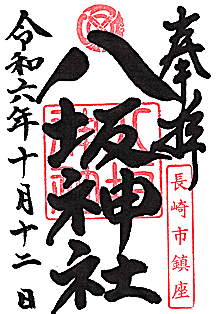 奉拝
長崎市鎮座
八坂神社
令和六年十月十二日